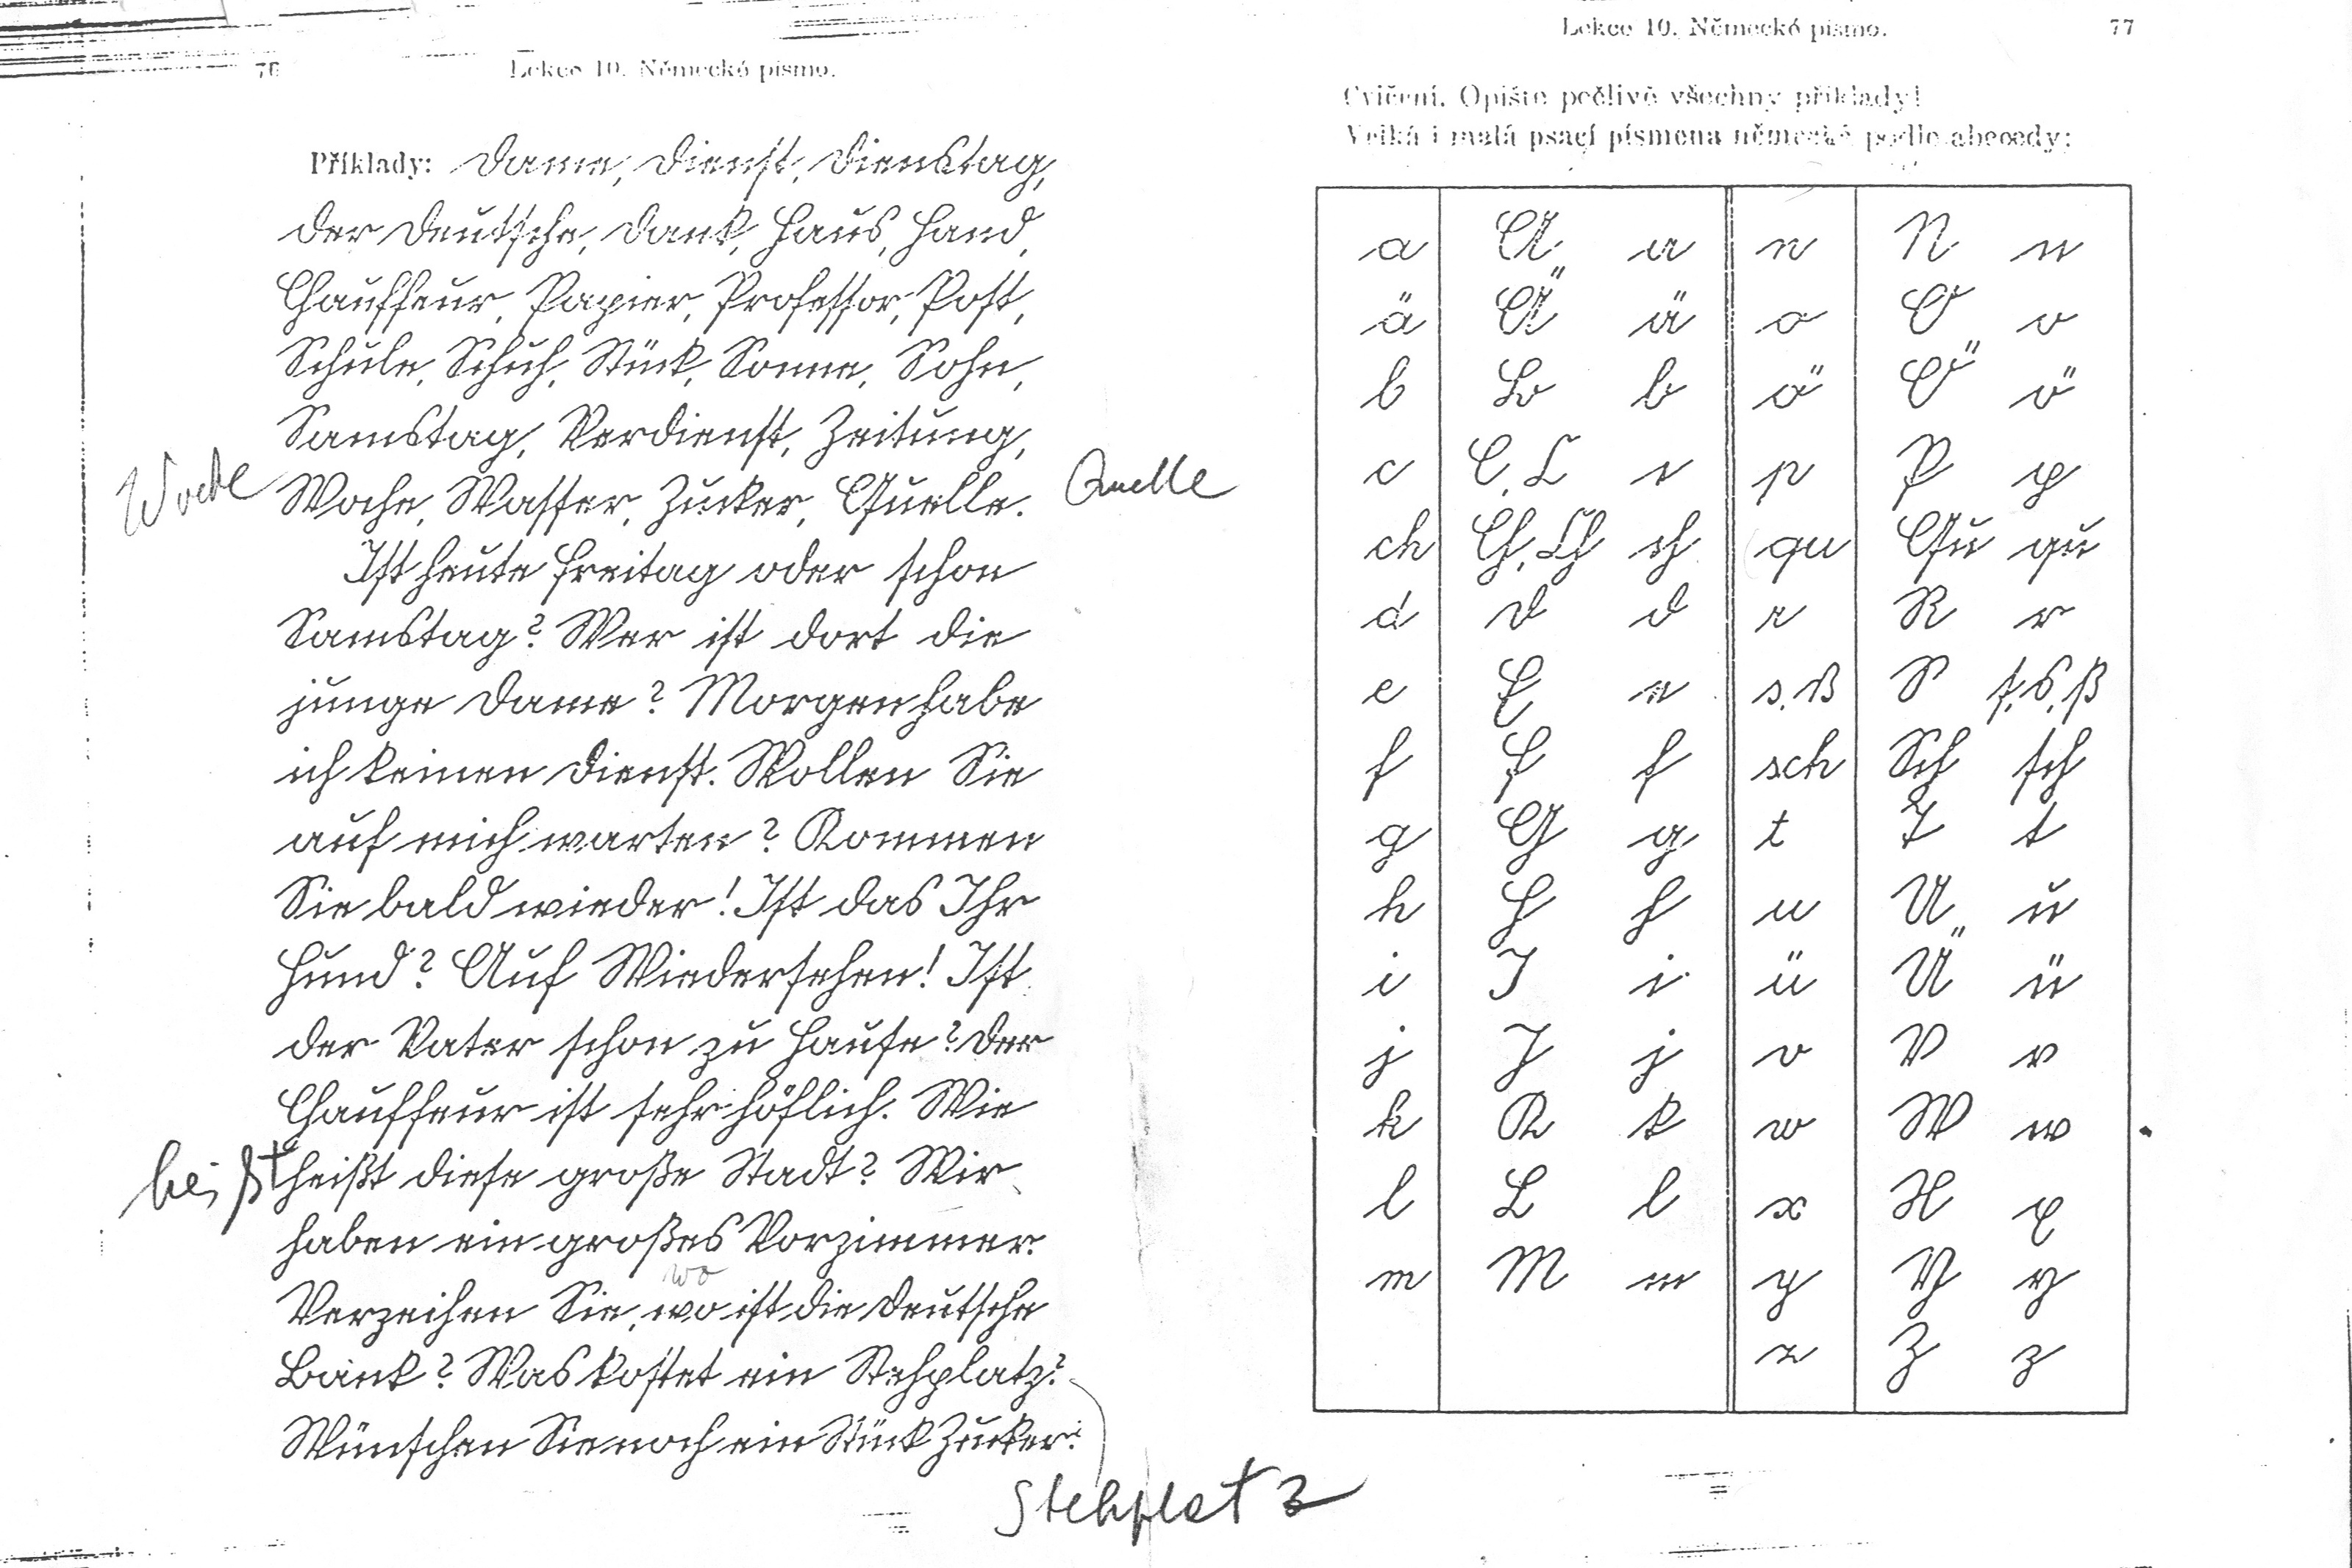 76
Lekce 10. Německé písmo.
Příklady: Dame, Dienst, Dienstag,
der Deutsche, Dank, Haus, Hand,
Chauffeur, Papier, Professor, Post,
Schule, Schuh, Stück, Sonne, Sohn,
Samstag, Verdienst, Zeitung,
Woche
Woche, Wasser, Zucker, Quelle.
Quelle
Ist heute Freitag oder schon
Samstag? Wer ist dort die
junge Dame? Morgen habe
ich keinen Dienst. Wollen Sie
auf mich warten? Kommen
Sie bald wieder! Ist das Ihr
Hund? Auf Wiedersehen! Ist
der Vater schon zu Hause? Der
Chauffeur ist sehr höflich. Wie
heißt
heißt diese große Stadt? Wir
haben ein großes Vorzimmer.
wo
Verzeihen Sie, wo ist die Deutsche
Bank? Was kostet ein Stehplatz?
Wünschen Sie noch ein Stück Zucker?
Stehplatz
Lekce 10. Německé písmo.
77
Cvičení. Opište pečlivě všechny příklady!
Velká i malá psací písmena německé podle abecedy:
a A a n N n
ä Ä ä o O o
b B b ö Ö ö
c C, C c p P p
ch Ch, Ch ch qu Qu qu
d D d r R r
e E e s, ß S ſ, s, ß
f F f sch Sch sch
g G g t T t
h H h u U u
i I i ü Ü ü
j J j v V v
k K k w W w
l L l x X x
m M m y Y y
z Z z